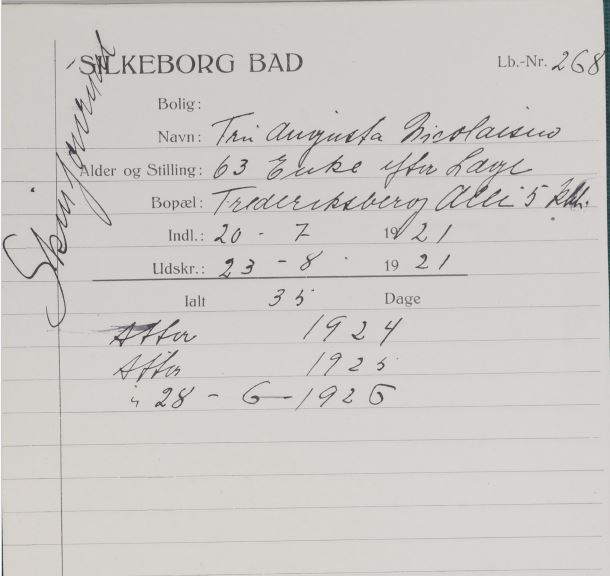 SILKEBORG BAD
Lb.-Nr. 268
Bolig:
Navn: Fru Augusta Nicolaisen
Alder og Stilling: 63 Enke efter Læge
Bopæl: Frederiksberg Allé 5 Kbh.
Indl.: 20 - 7 1921
Udskr.: 23 - 8 1921
Ialt 35 Dage
Atter 1924
Atter 1925
" 28 - 6 - 1926